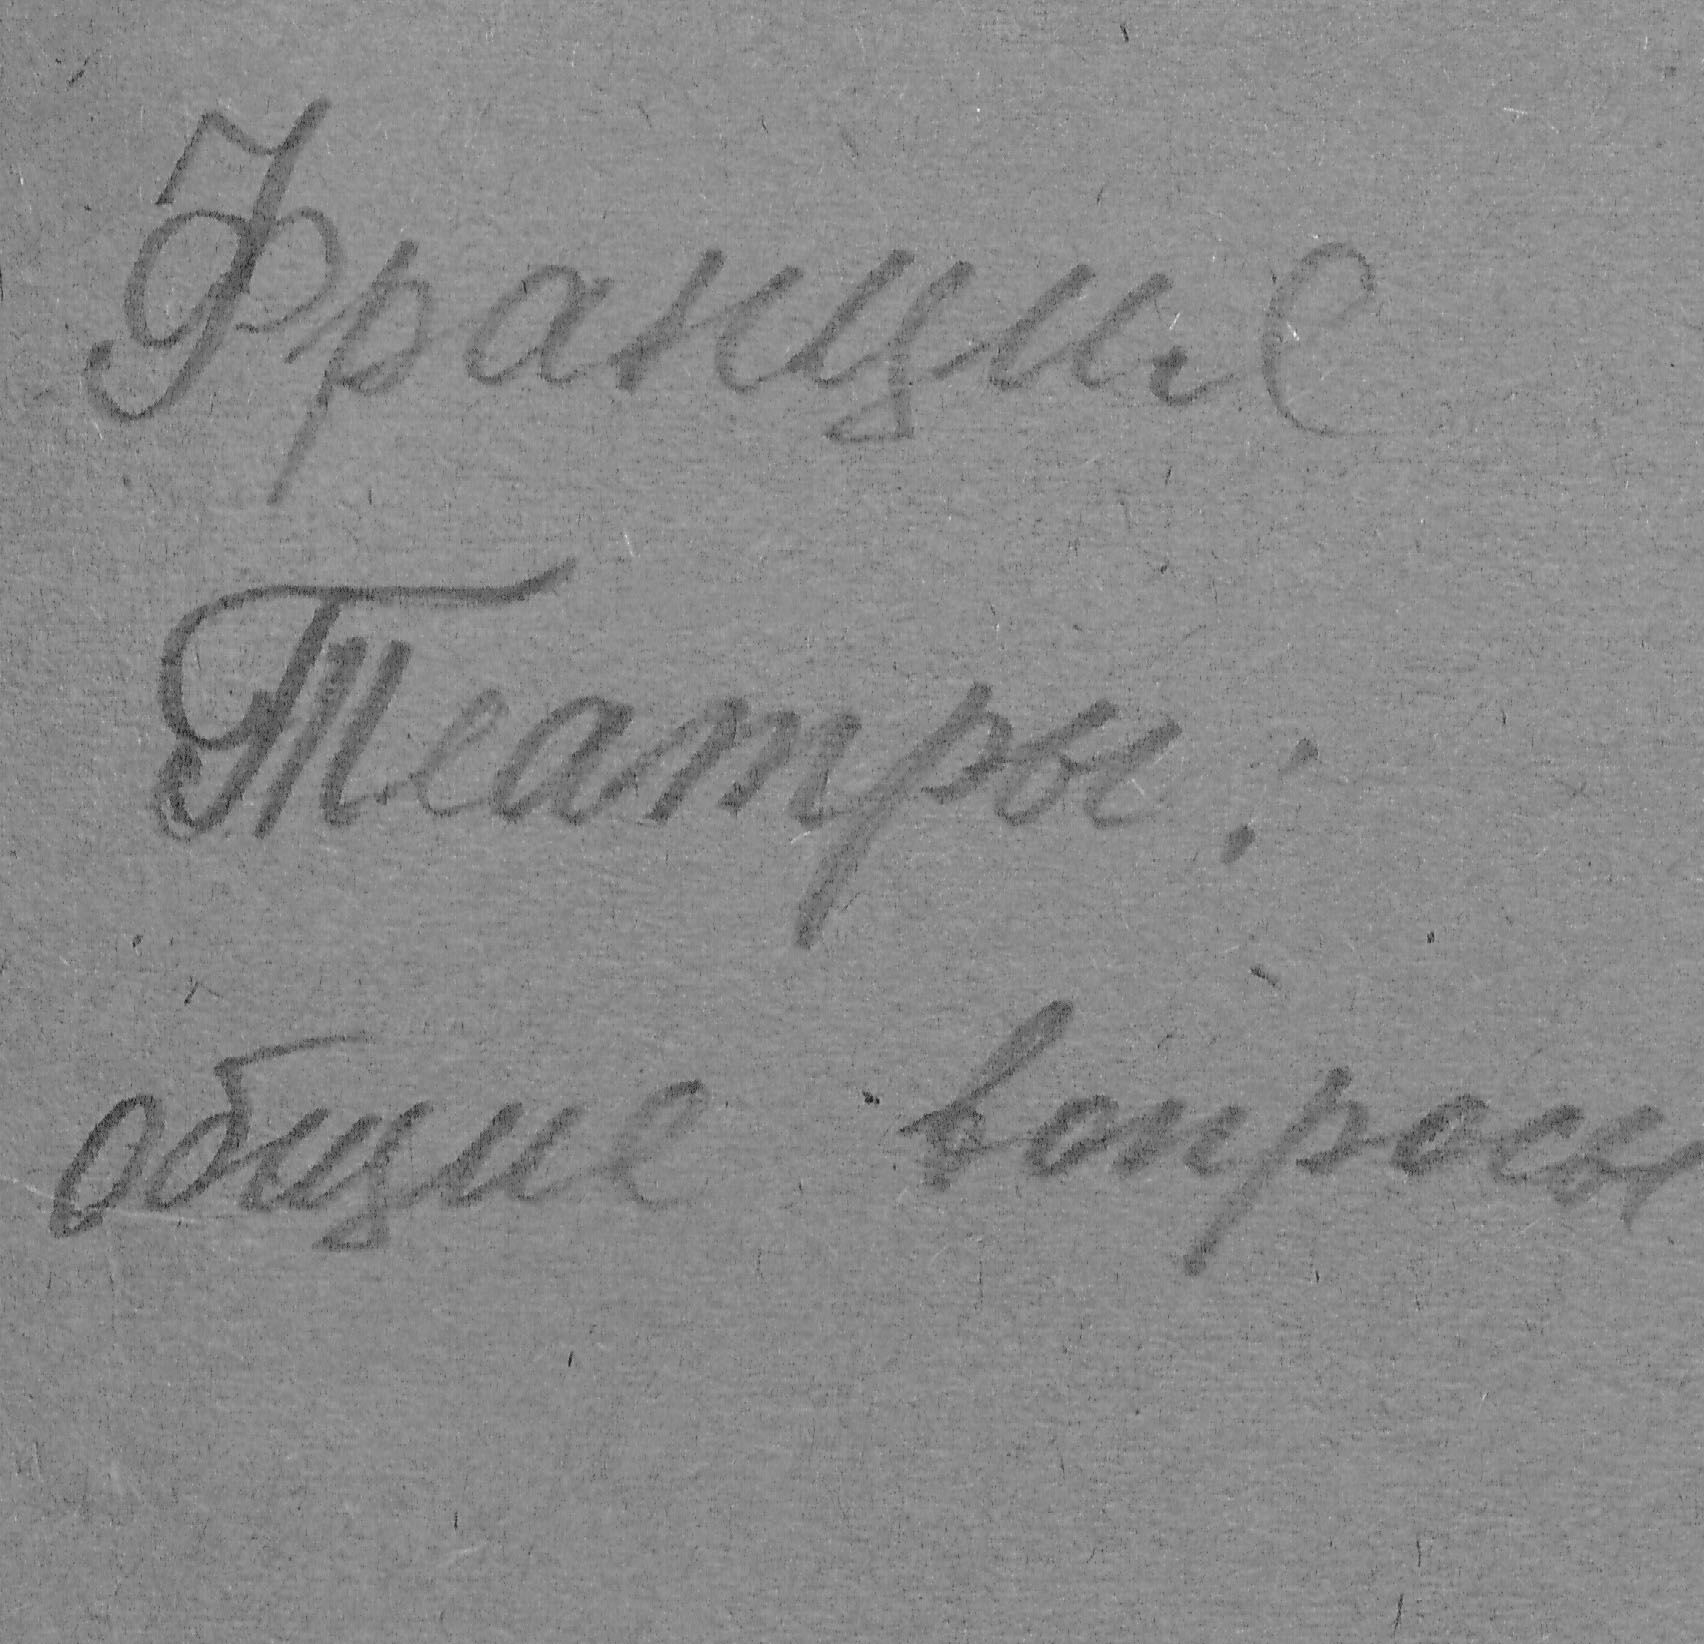 Франция
Театры:
общие вопросы